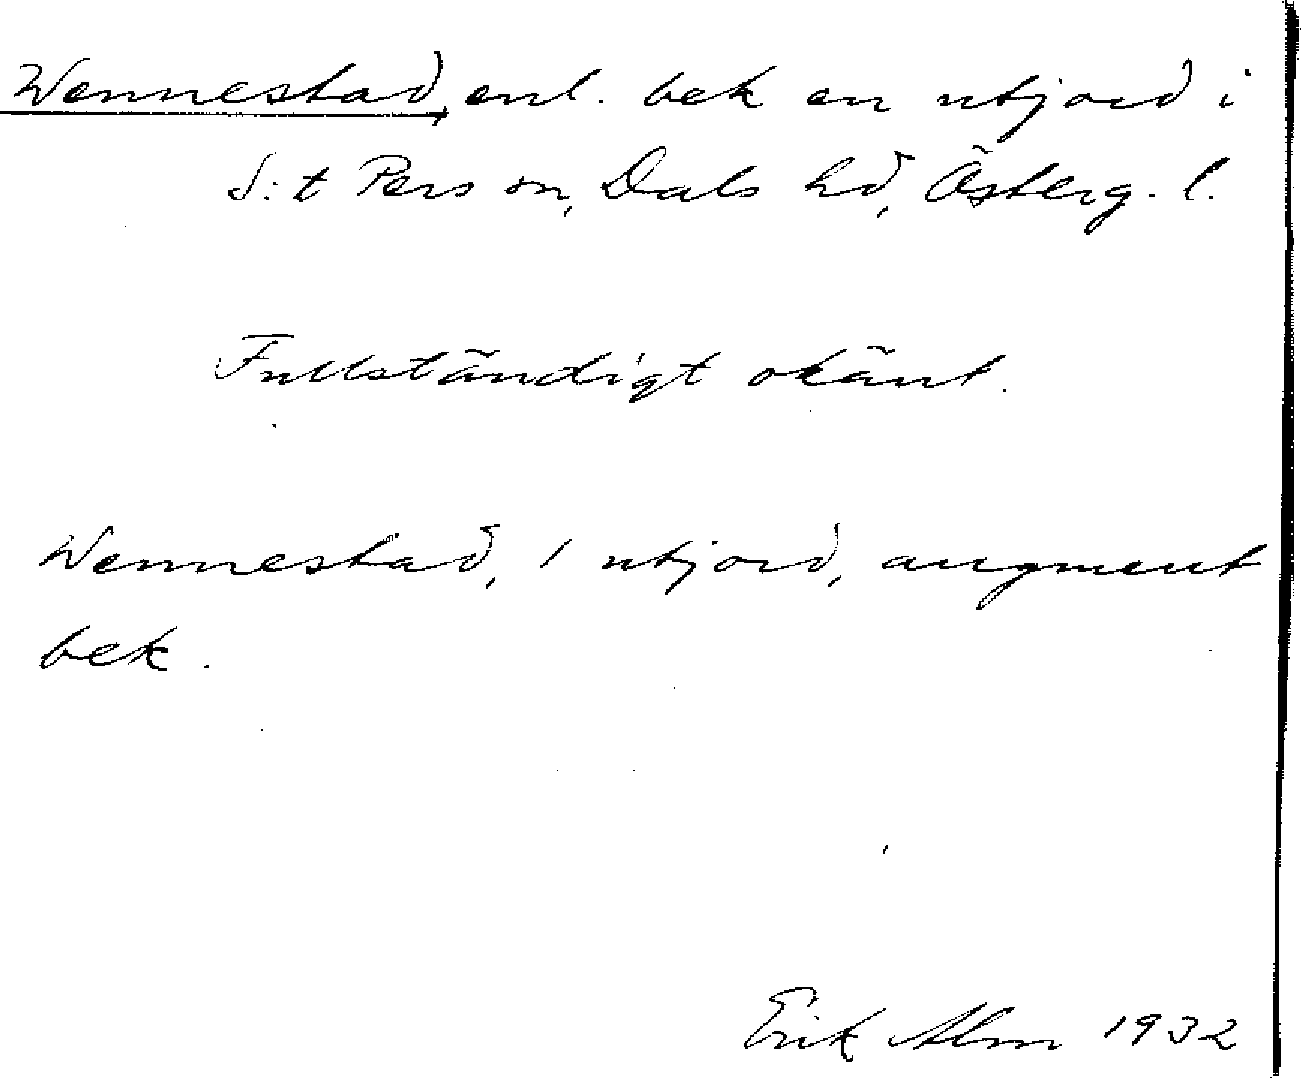 Wennestad, enl. bek en utjord i
S:t Pers sn, Dals hd, Österg. l.
Fullständigt okänt.
Wennestad, 1 utjord, augment
bek.
Erik Alm 1932